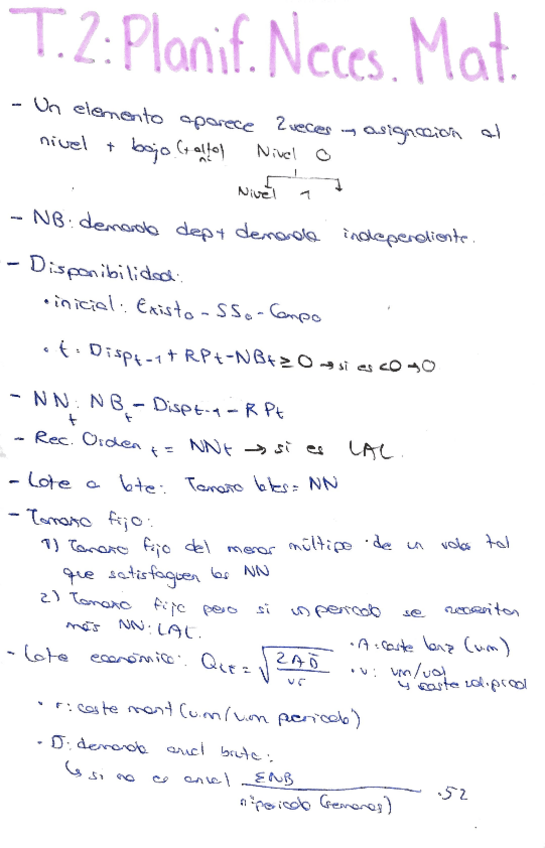 T.2: Planif. Neces. Mat.
- Un elemento aparece 2 veces → asignación al
nivel + bajo (+ alto) Nivel 0
nº
Nivel 1
- NB: demanda dep + demanda independiente.
- Disponibilidad:
• inicial: Exist0 - SS0 - Compo
• t: Dispt-1 + RPt - NBt ≥ 0 → si es <0 → 0
- NNt: NBt - Dispt-1 - RPt
- Rec. Orden t = NNt → si es LAL.
- Lote a lote: Tamaño lotes = NN
- Tamaño fijo:
1) Tamaño fijo del menor múltipo de un valor tal
que satisfaguen las NN
2) Tamaño fijo pero si un periodo se necesitan
más NN: LAL.
- Lote económico: QLE = √(2AD̄ / vr) • A: coste lanz (u.m)
• v: um/ud
y coste ud. prod
• r: coste mant (u.m/u.m periodo)
• D̄: demanda anual bruta:
↳ si no es anual ΣNB / nº periodo (semanas) · 52